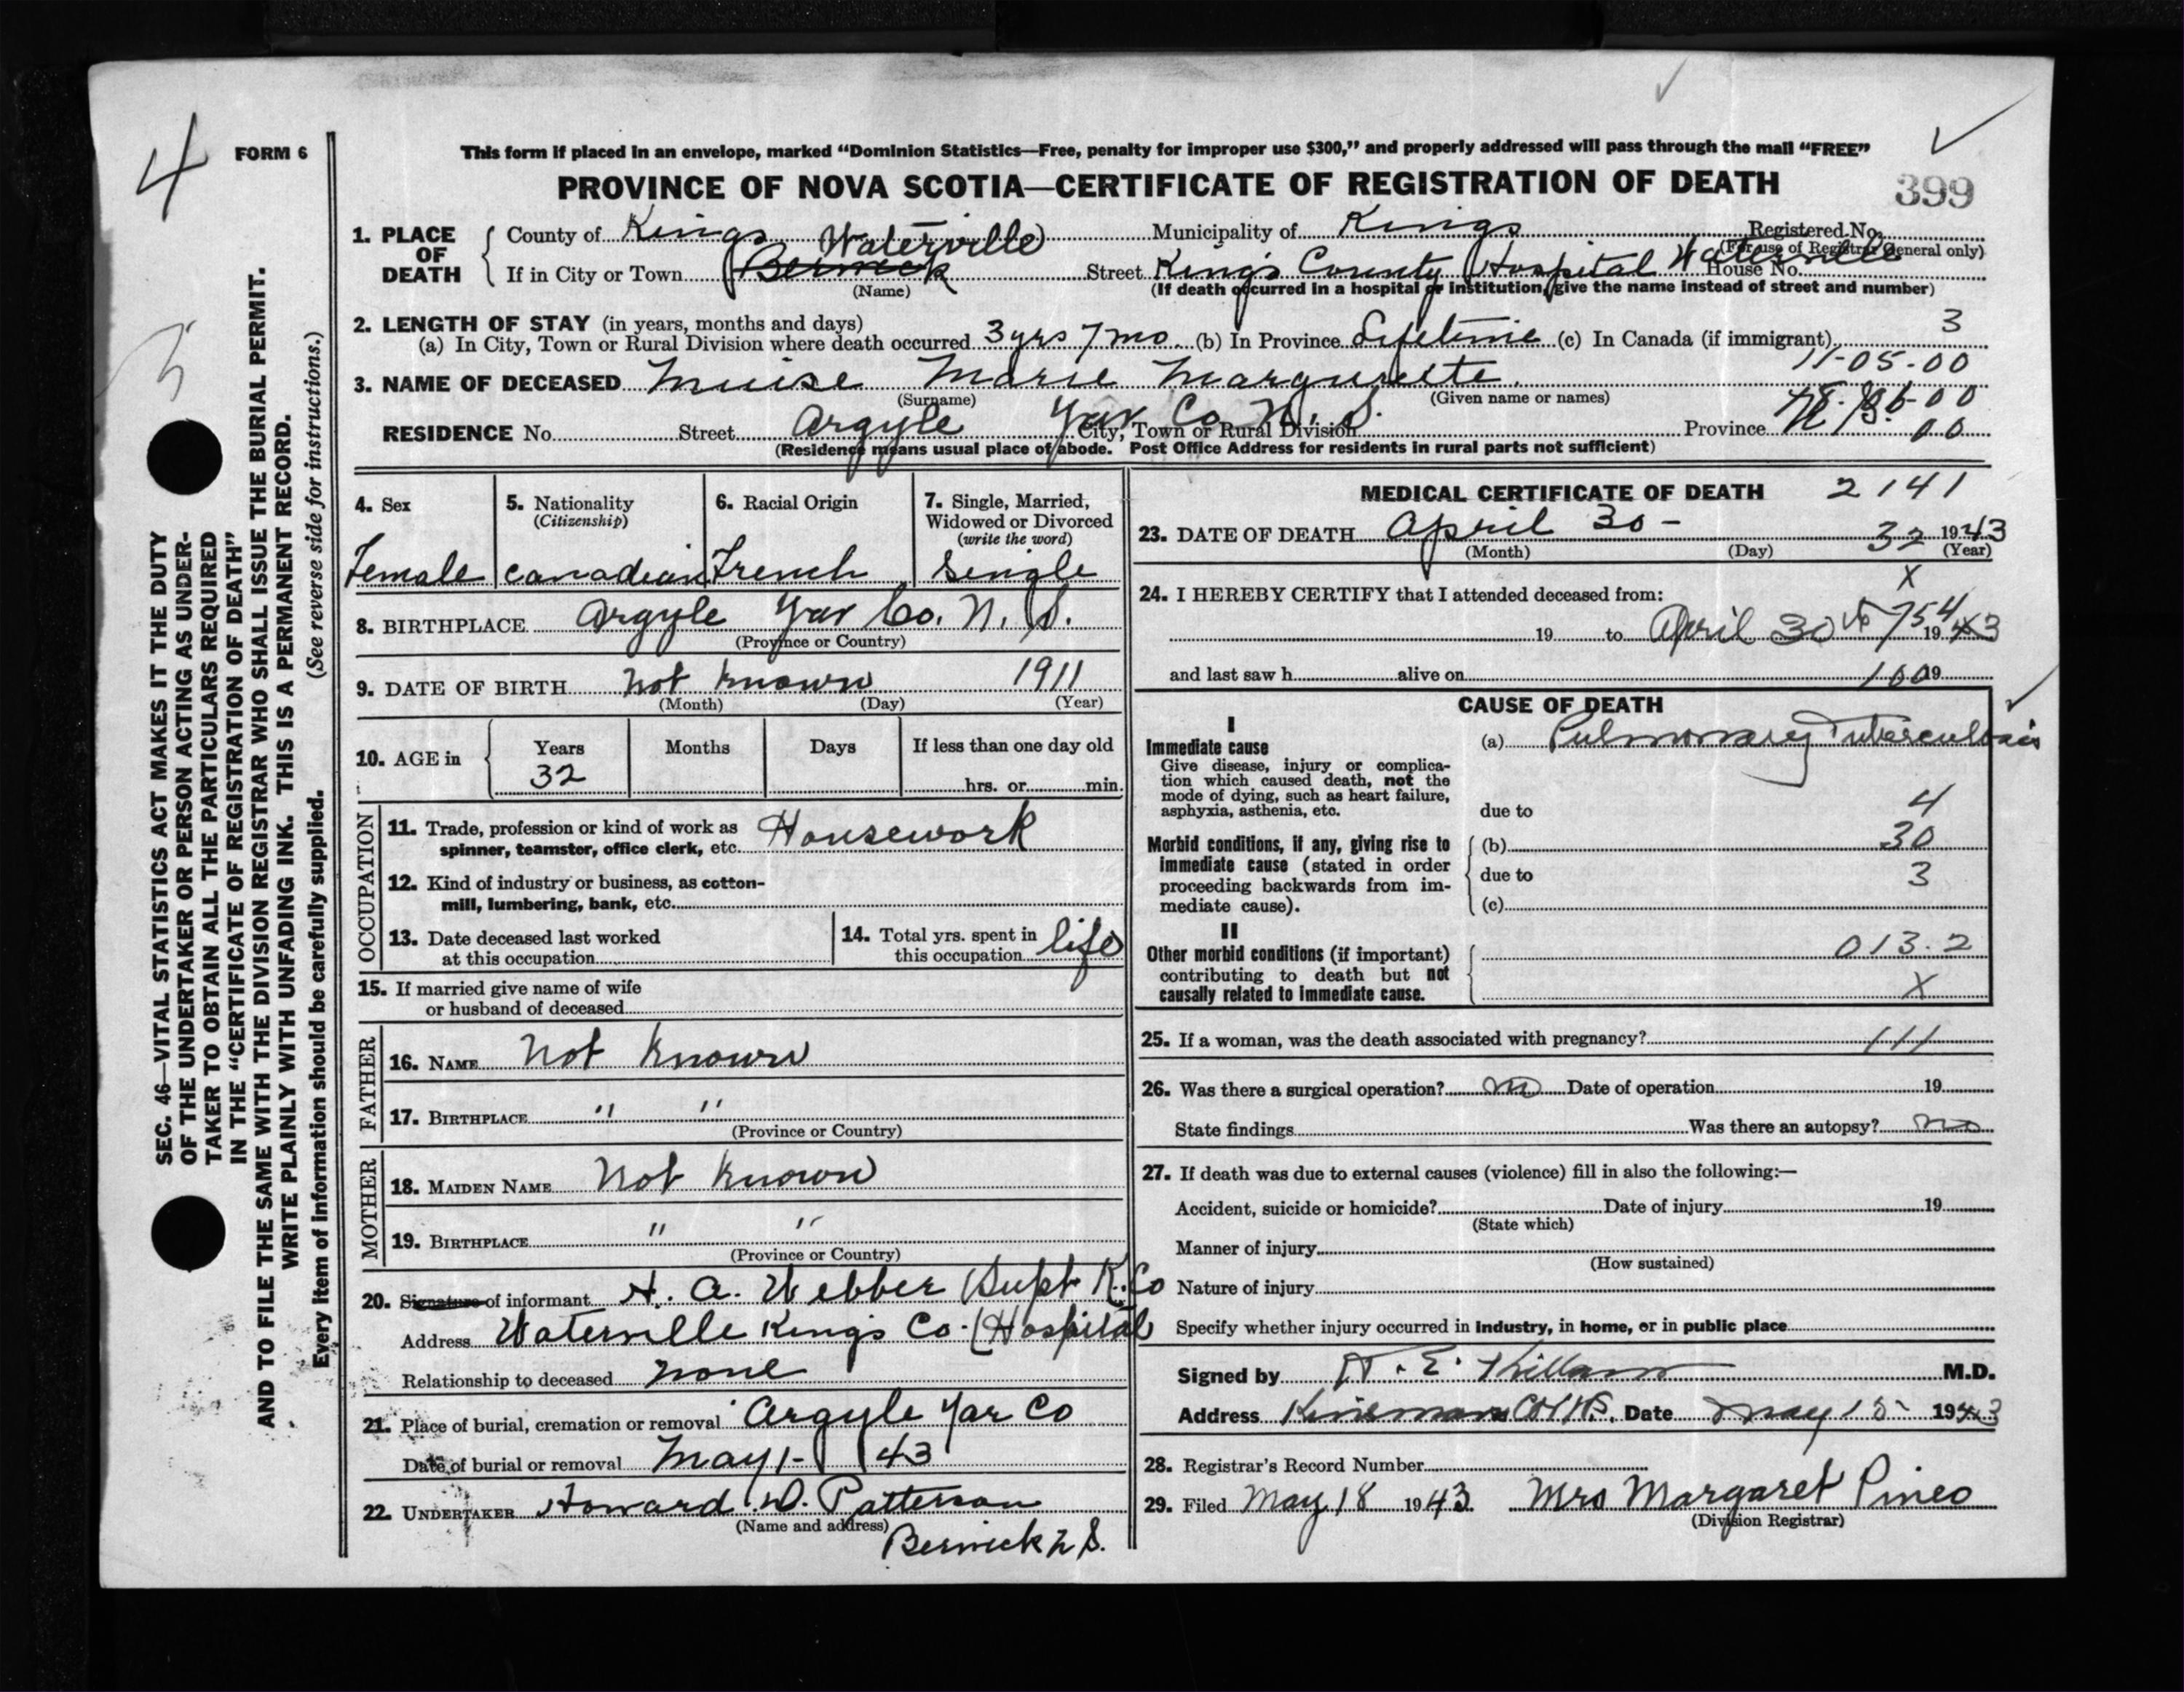 4
FORM 6
This form if placed in an envelope, marked “Dominion Statistics—Free, penalty for improper use $300,” and properly addressed will pass through the mail “FREE”
PROVINCE OF NOVA SCOTIA—CERTIFICATE OF REGISTRATION OF DEATH
399
SEC. 46—VITAL STATISTICS ACT MAKES IT THE DUTY
OF THE UNDERTAKER OR PERSON ACTING AS UNDER-
TAKER TO OBTAIN ALL THE PARTICULARS REQUIRED
IN THE “CERTIFICATE OF REGISTRATION OF DEATH”
AND TO FILE THE SAME WITH THE DIVISION REGISTRAR WHO SHALL ISSUE THE BURIAL PERMIT.
WRITE PLAINLY WITH UNFADING INK. THIS IS A PERMANENT RECORD.
Every item of information should be carefully supplied. (See reverse side for instructions.)
1. PLACE OF DEATH
County of Kings Municipality of Kings Registered No.
(For use of Registrar General only)
Waterville
If in City or Town Berwick Street Kings County Hospital Waterville House No.
(Name) (If death occurred in a hospital or institution, give the name instead of street and number)
2. LENGTH OF STAY (in years, months and days) 3
(a) In City, Town or Rural Division where death occurred 3 yrs 7 mo (b) In Province Lifetime (c) In Canada (if immigrant)
11-05-00
3. NAME OF DECEASED Muise Marie Marguerite
(Surname) (Given name or names)
RESIDENCE No. Street Argyle Yar Co N. S. City, Town or Rural Division Province 00
(Residence means usual place of abode. Post Office Address for residents in rural parts not sufficient)
4. Sex
Female
5. Nationality
(Citizenship)
Canadian
6. Racial Origin
French
7. Single, Married,
Widowed or Divorced
(write the word)
Single
8. BIRTHPLACE Argyle Yar Co. N. S.
(Province or Country)
9. DATE OF BIRTH not known 1911
(Month) (Day) (Year)
10. AGE in Years Months Days If less than one day old
32 hrs. or min.
OCCUPATION
11. Trade, profession or kind of work as
spinner, teamster, office clerk, etc. Housework
12. Kind of industry or business, as cotton-
mill, lumbering, bank, etc.
13. Date deceased last worked
at this occupation
14. Total yrs. spent in
this occupation life
15. If married give name of wife
or husband of deceased
FATHER
16. NAME not known
17. BIRTHPLACE " "
(Province or Country)
MOTHER
18. MAIDEN NAME not known
19. BIRTHPLACE " "
(Province or Country)
20. Signature of informant H. A. Webber Supt K. Co
Address Waterville Kings Co. Hospital
Relationship to deceased none
21. Place of burial, cremation or removal Argyle Yar Co
Date of burial or removal May 1- 43
22. UNDERTAKER Howard D. Patterson
(Name and address)
Berwick N S.
MEDICAL CERTIFICATE OF DEATH 2141
23. DATE OF DEATH April 30 - 32 1943
(Month) (Day) (Year)
x
24. I HEREBY CERTIFY that I attended deceased from:
19 to April 30 1943
and last saw h alive on 100 19
CAUSE OF DEATH
I
Immediate cause
Give disease, injury or complica-
tion which caused death, not the
mode of dying, such as heart failure,
asphyxia, asthenia, etc.
(a) Pulmonary Tuberculosis
due to 4
Morbid conditions, if any, giving rise to
immediate cause (stated in order
proceeding backwards from im-
mediate cause).
(b) 30
due to 3
(c)
II
Other morbid conditions (if important)
contributing to death but not
causally related to immediate cause.
013.2
X
25. If a woman, was the death associated with pregnancy? 111
26. Was there a surgical operation? no Date of operation 19
State findings Was there an autopsy? no
27. If death was due to external causes (violence) fill in also the following:—
Accident, suicide or homicide? Date of injury 19
(State which)
Manner of injury
(How sustained)
Nature of injury
Specify whether injury occurred in industry, in home, or in public place
Signed by E. Killam M.D.
Address Date May 15 1943
28. Registrar's Record Number
29. Filed May 18 1943 Mrs Margaret Pineo
(Division Registrar)